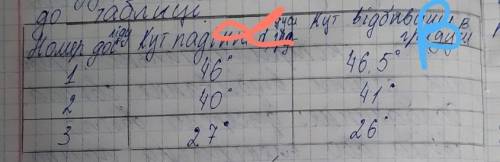 до таблиці
Номер досліду Кут падіння α Кут відбивання β в градусах
1 46° 46,5°
2 40° 41°
3 27° 26°